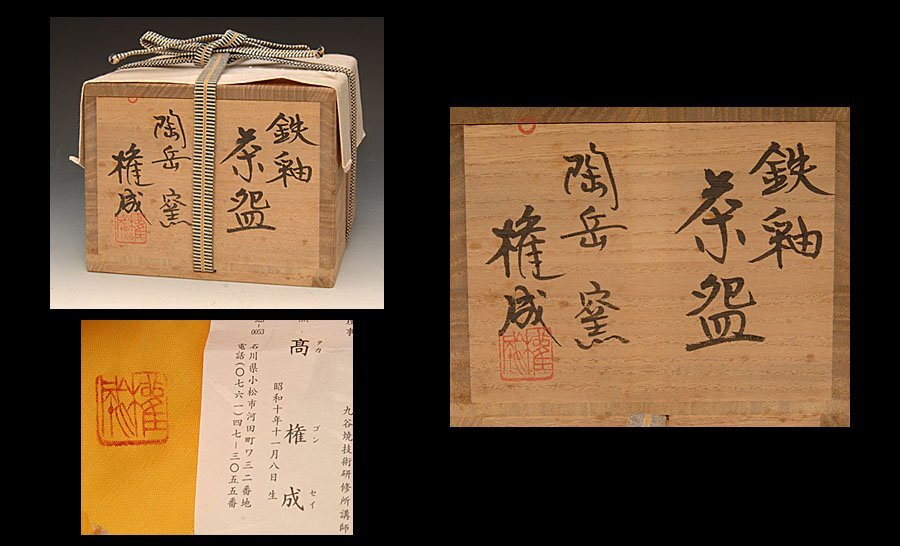 鉄釉
茶盌
陶岳窯
権成
権成
鉄釉
茶盌
陶岳窯
権成
権成
権成
九谷焼技術研修所講師
理事
髙権成
タカ ゴン セイ
昭和十年十一月八日生
0053
石川県小松市河田町ワ三二番地
電話(〇七六一)四七―三〇五五番